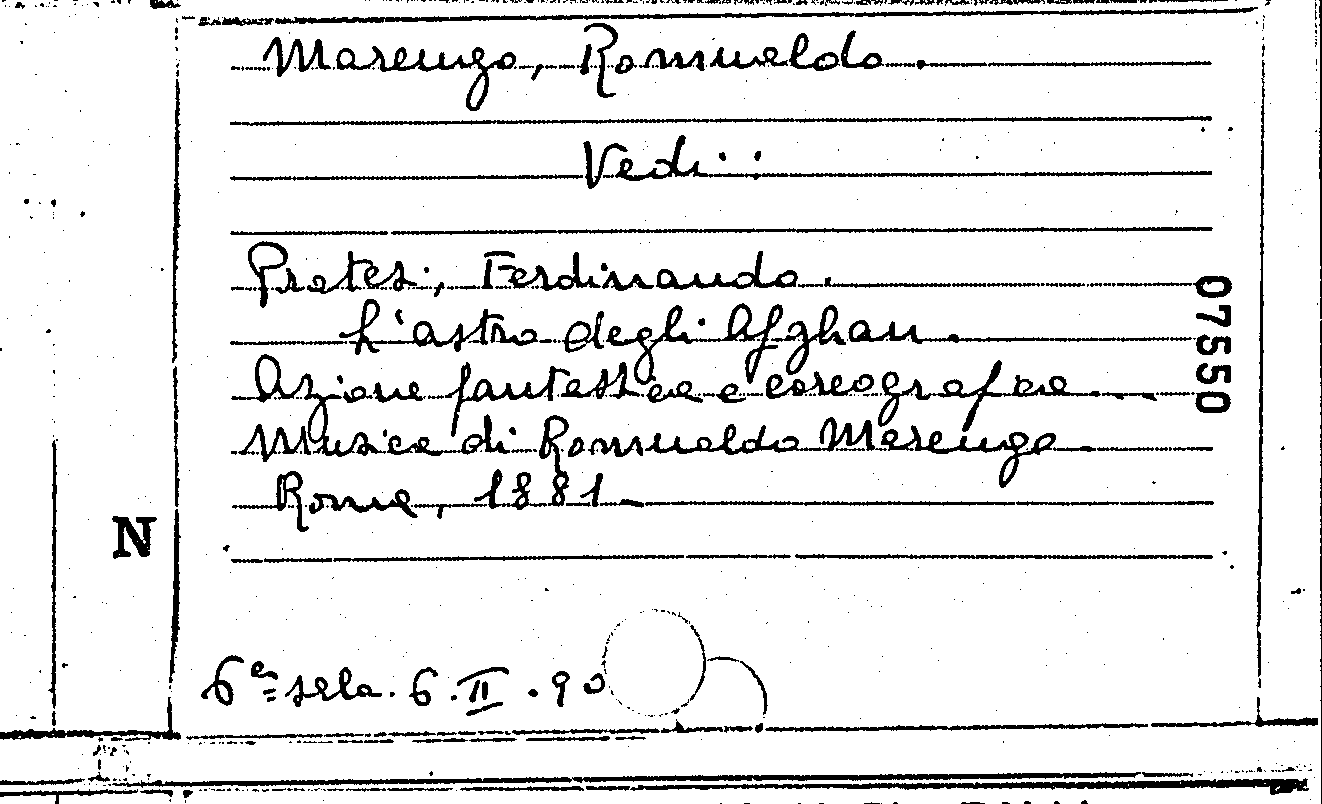 Marengo, Romualdo.
Vedi:
Pratesi, Ferdinando.
L'astro degli Afghan.
Azione fantastica e coreografica...
Musica di Romualdo Marengo
Roma, 1881
07550
N
6ª sala. 6.II.90